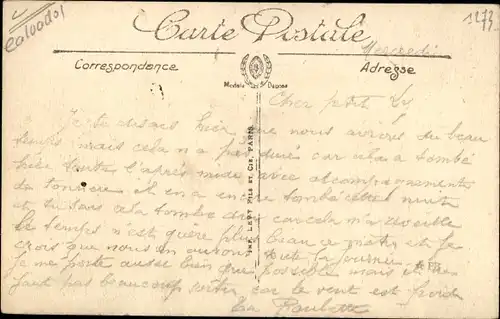 1272
Carte Postale
Mercredi
Correspondance
Adresse
Cher petit
Je te disais hier que nous avions du beau
temps mais cela n'a pas duré car il a tombé
hier toute l'après midi avec accompagnements
de tonnerre il en a encore tombé cette nuit
et tu sais cela tombe car cela m'a réveillé
le temps n'est guère plus beau ce matin et je
crois que nous en aurons toute la journée
je me porte aussi bien que possible mais il ne
faut pas beaucoup sortir car le vent est froid
Ta Paulette
IMP. LEVY FILS ET CIE. PARIS